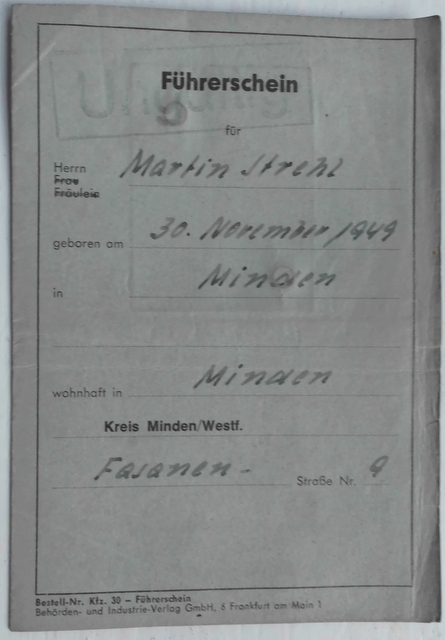 Ungültig
Führerschein
für
Herrn Martin Strehl
Frau
Fräulein
geboren am 30. November 1949
in Minden
wohnhaft in Minden
Kreis Minden/Westf.
Fasanen- Straße Nr. 9
Bestell-Nr. Kfz. 30 – Führerschein
Behörden- und Industrie-Verlag GmbH, 6 Frankfurt am Main 1